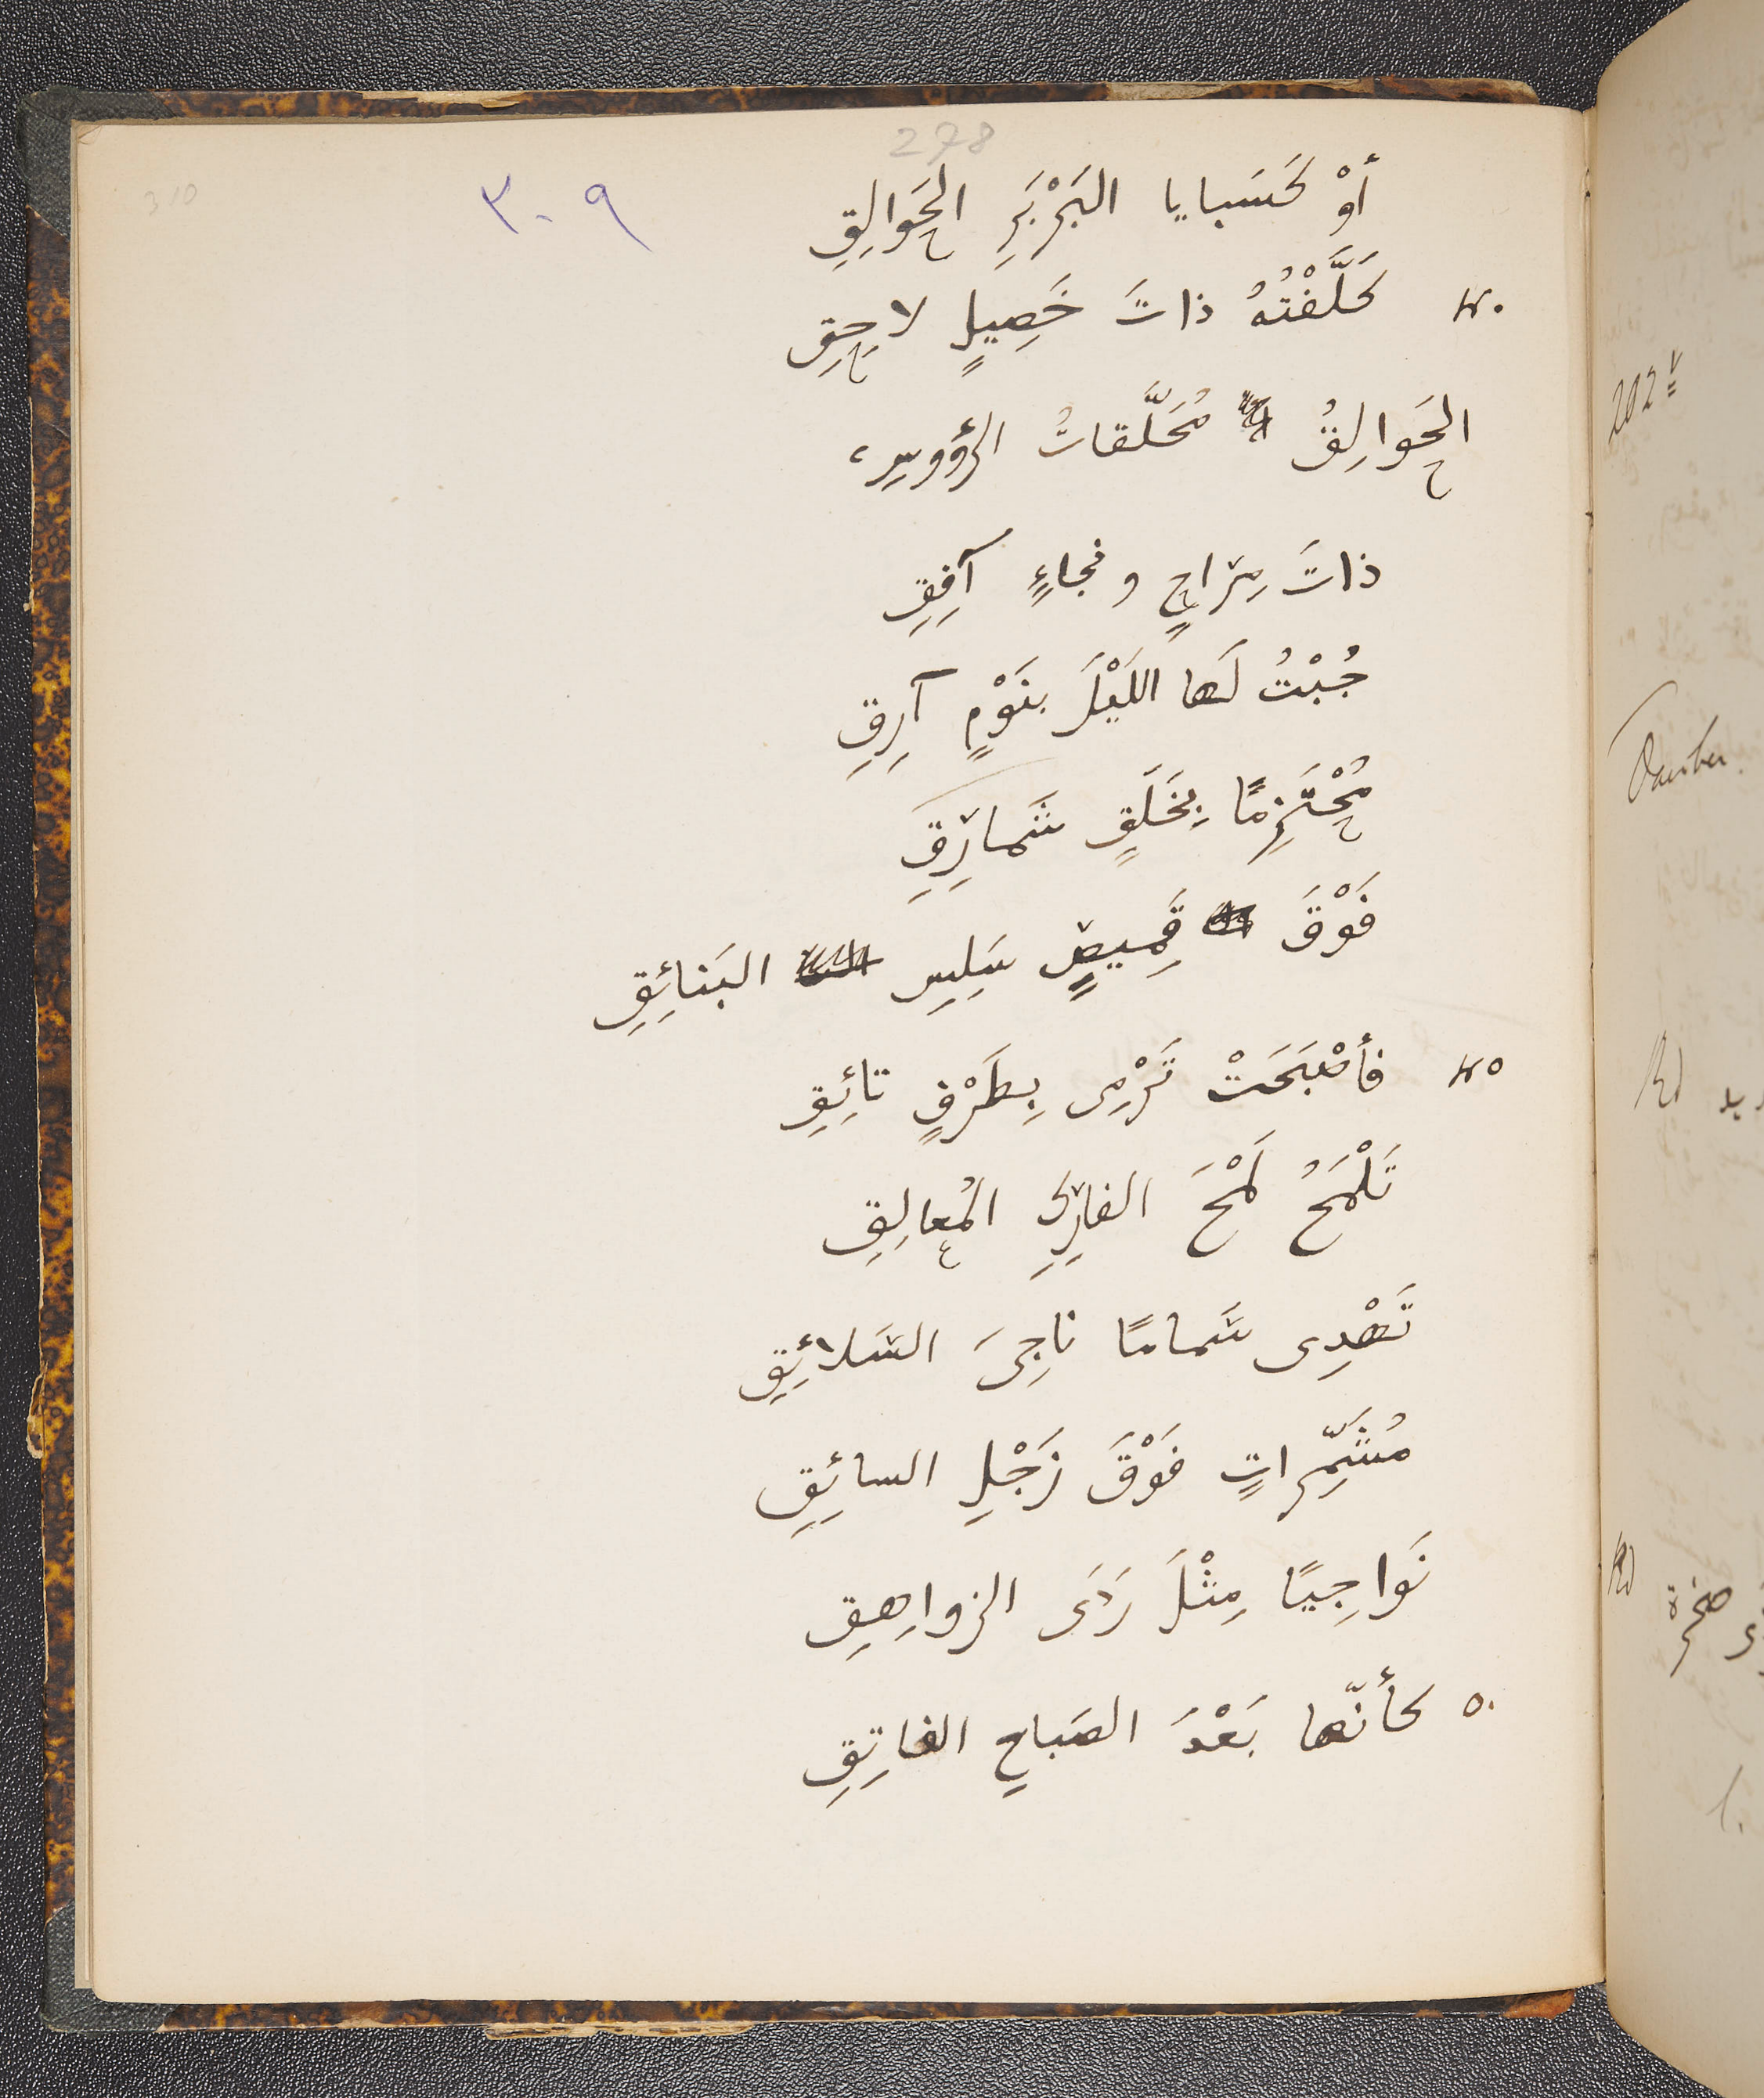 278
310
٣٠٩
أوْ كَسَبايا البَرْبَرِ الحَوالِقِ
٤٠ كَلَّفْتُهُ ذاتَ خَصِيلٍ لاحِقِ
الحَوالِقُ مُحَلَّقاتُ الرؤوسِ،
ذاتَ مِرَاحٍ ونجاءٍ آفِقِ
جُبْتُ لَها اللَيْلَ بنَوْمٍ آرِقِ
مُحْتَزِمًا بِخَلَقٍ شَمارِقِ
فَوْقَ قَمِيصٍ سَلِسِ البَنائِقِ
٤٥ فأصْبَحَتْ تَرْمِى بِطَرْفٍ تائِقِ
تَلْمَحُ لَمْحَ الفارِكِ المُعالِقِ
تَهْدِى سَماما ناجِىَ السَلائِقِ
مُشَمِّراتٍ فَوْقَ زَجْلِ السائِقِ
نَواجِيًا مِثْلَ رَدَى الزواهِقِ
٥٠ كأنّها بَعْدَ الصَباحِ الفاتِقِ
202 v
صخرة